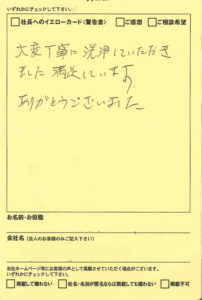 いずれかにチェックして下さい。
□社長へのイエローカード〈警告書〉 □ご感想 □ご相談希望
大変丁寧に洗浄していただき
ました 満足しています。
ありがとうございました
お名前・お役職
会社名（法人のお客様のみご記入下さい）
当社ホームページ等にお客様の声として掲載させていただく場合がございます。
いずれかにチェックして下さい。
□掲載して構わない □社名・名前が匿名ならば掲載しても構わない □掲載不可